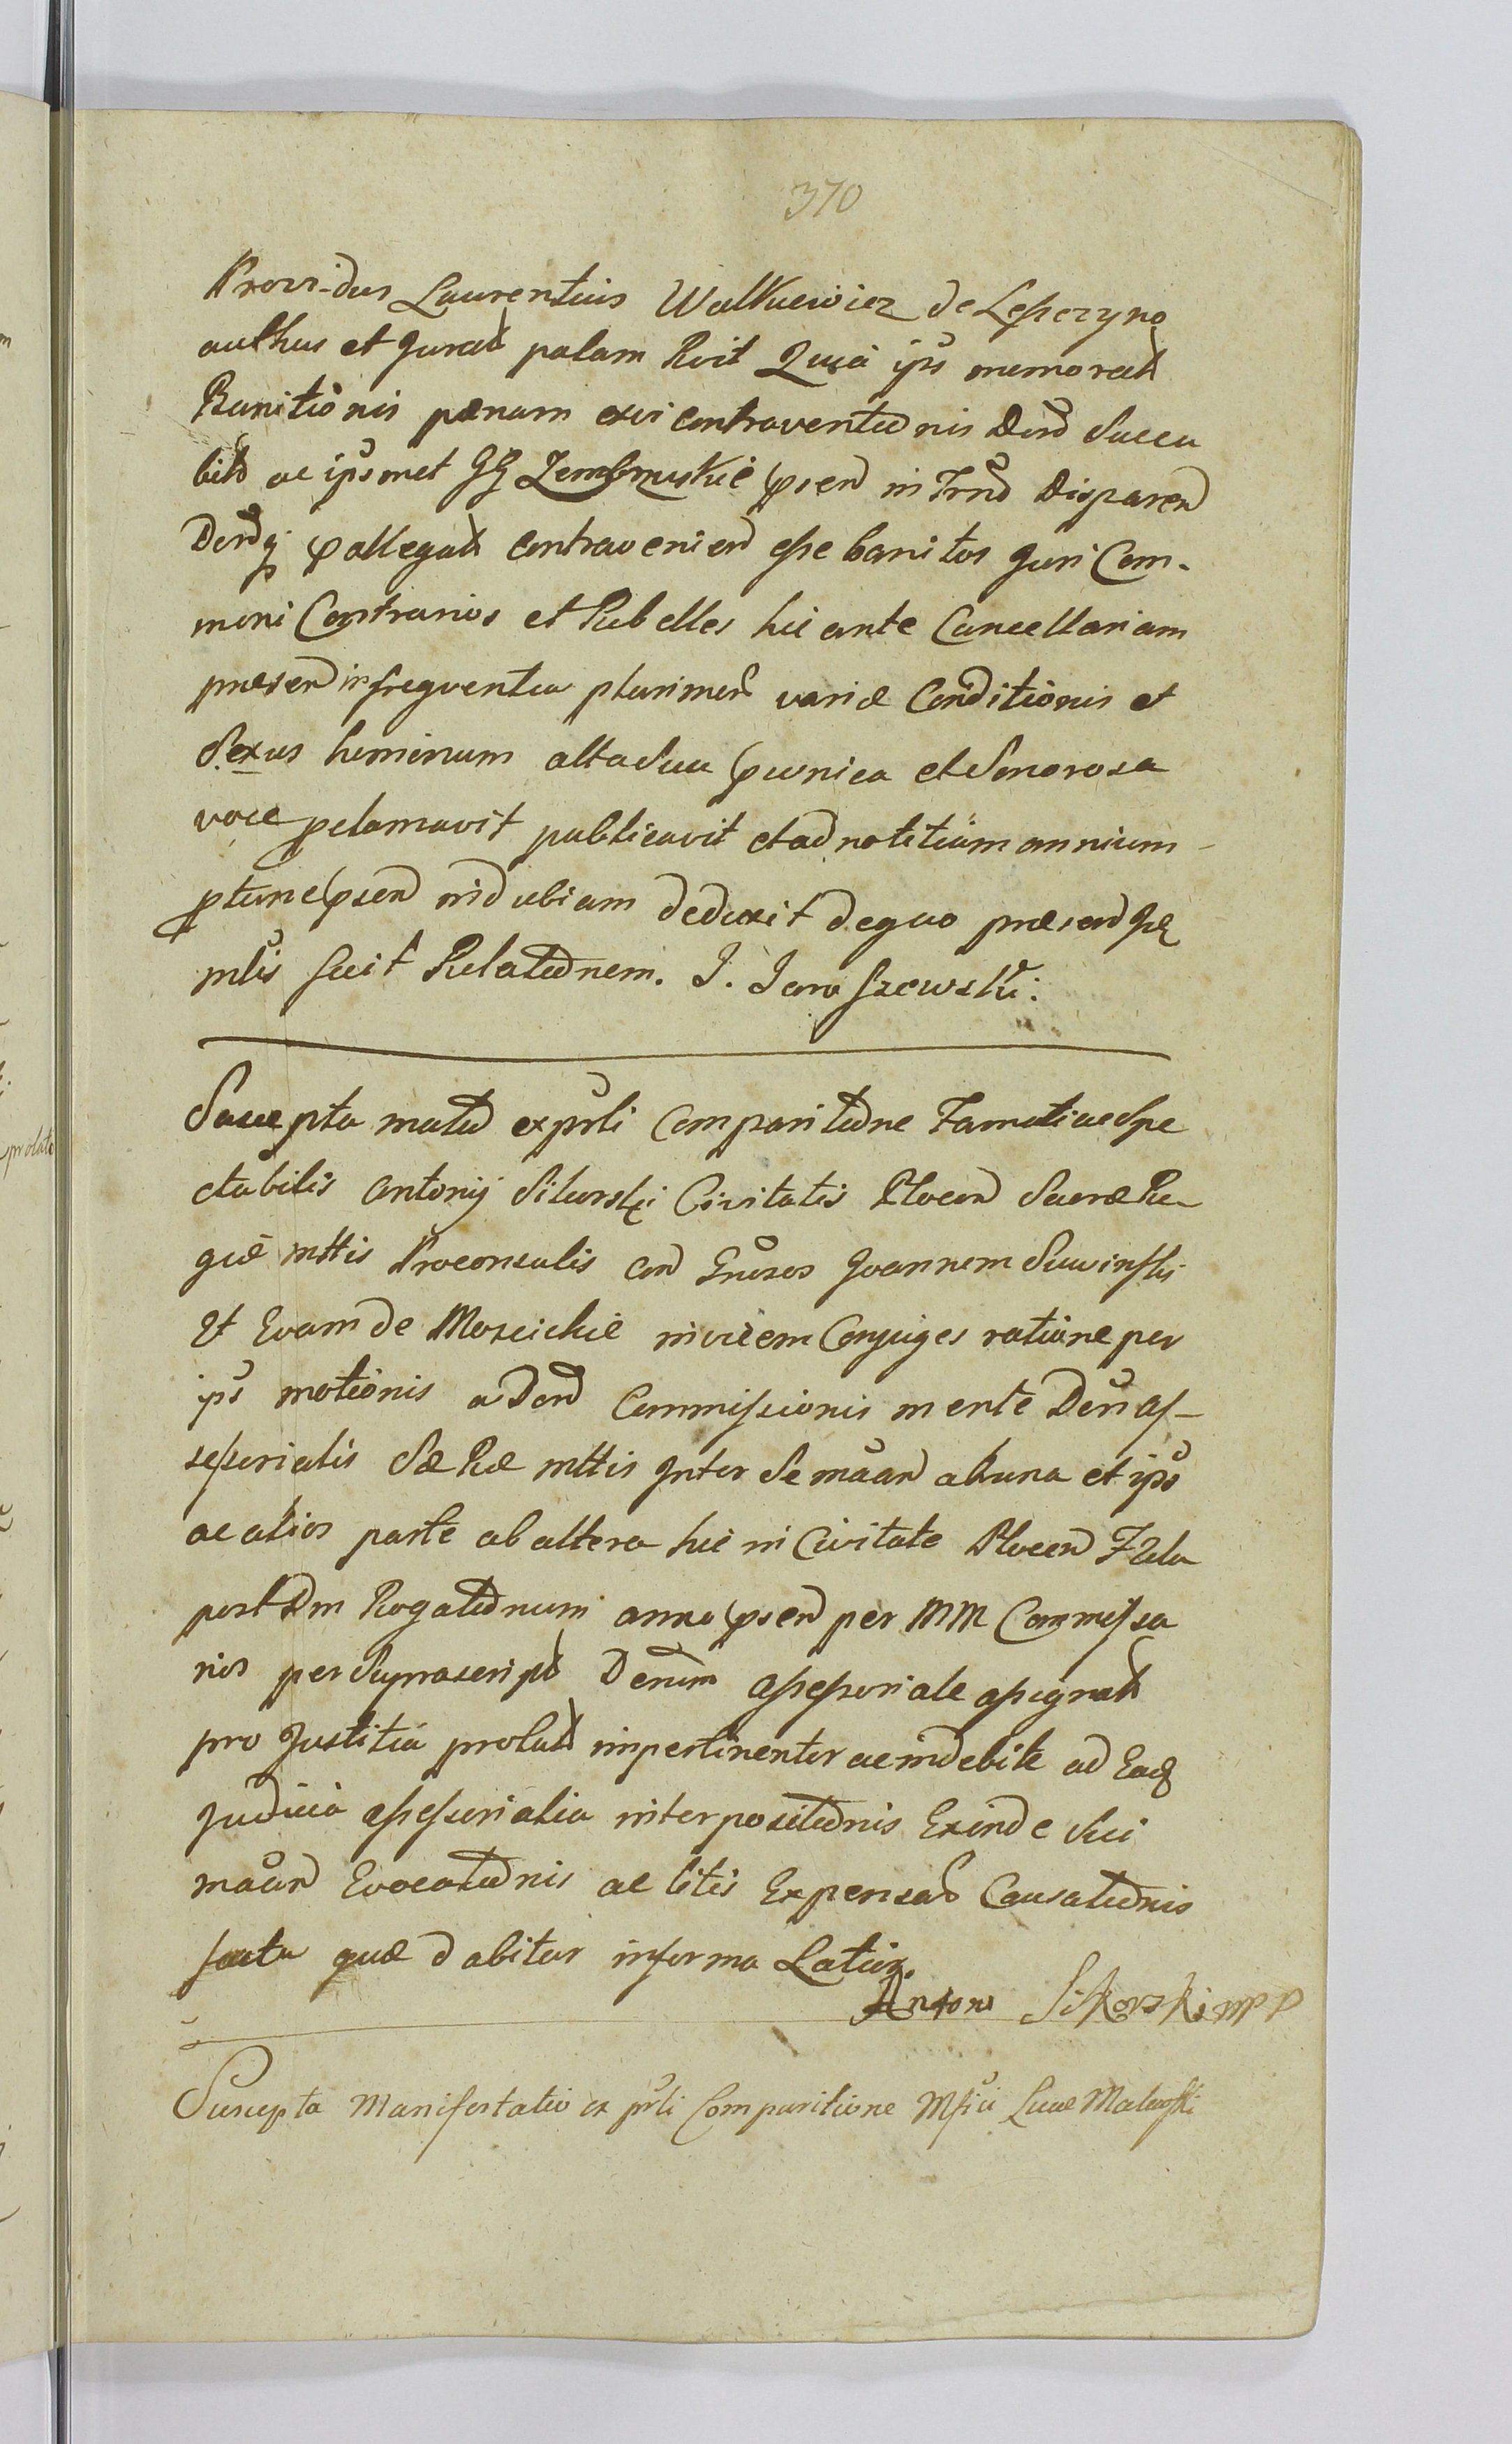 370
Providus Laurentius Walkiewicz de Leszczyno
authus et Jurat palam Rvit Quia ips memorat
Banitionis pænam exvi contraventionis Dend Succu
bitd ac ipsmet GG Zembrzuskie psend in Trnd Disparend
Dend q pallegat contraveniend esse banitos Juri Com-
muni Contrarios et Rebelles hic ante Cancellariam
præsend in freqventia plurimar variæ Conditionis et
Sexus hominum alta Sua punica et Sonorosa
voce pclamavit publicavit et ad notitiam omnium
ptunc psend indubiam deduxit deqvo præsend Jdq
mlis fecit Relationem. J. Jaroszewski:
Suscepta matd ex psli Comparitione Famati ac Spe
ctabilis Antonij Sikorski Civitatis Plocend Sacræ Re
giæ mttis Proconsulis con Gnosos Joannem Suwinski
Et Evam de Moscickie invicem Conjuges ratione per
ips motionis a Dend Commissionis mente Deri As-
sessorialis Sæ Ræ mttis Inter Se māand ab una et ips
ac alios parte ab altera hic in Civitate Plocend Fria
post Dm Rogationum anno psend per MM Commissa
rios per Suprascript Denum assessoriale assignat
pro Justitia prolat impertinenter ac indebite ad Ead
Judicia assessorialia interpositionis Exinde Sui
māand Evocationis ac litis Expensar Causationis
facta quæ dabitur in forma Latior.
Antoni Sikorski mpp
Suscepta Manifestatio ex psli Comparitione Msici Lucæ